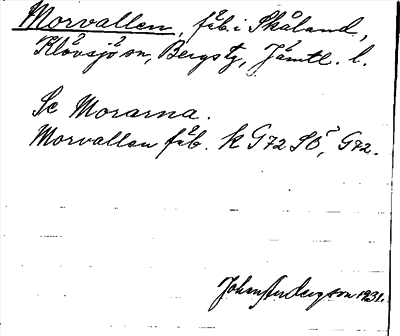 Morvallen, fäb. i Skåland,
Klövsjö sn, Bergs tg, Jämtl. l.
Se Morarna.
Morvallen fäb. k G72 SÖ, G72.
Johan Anderson 1931.